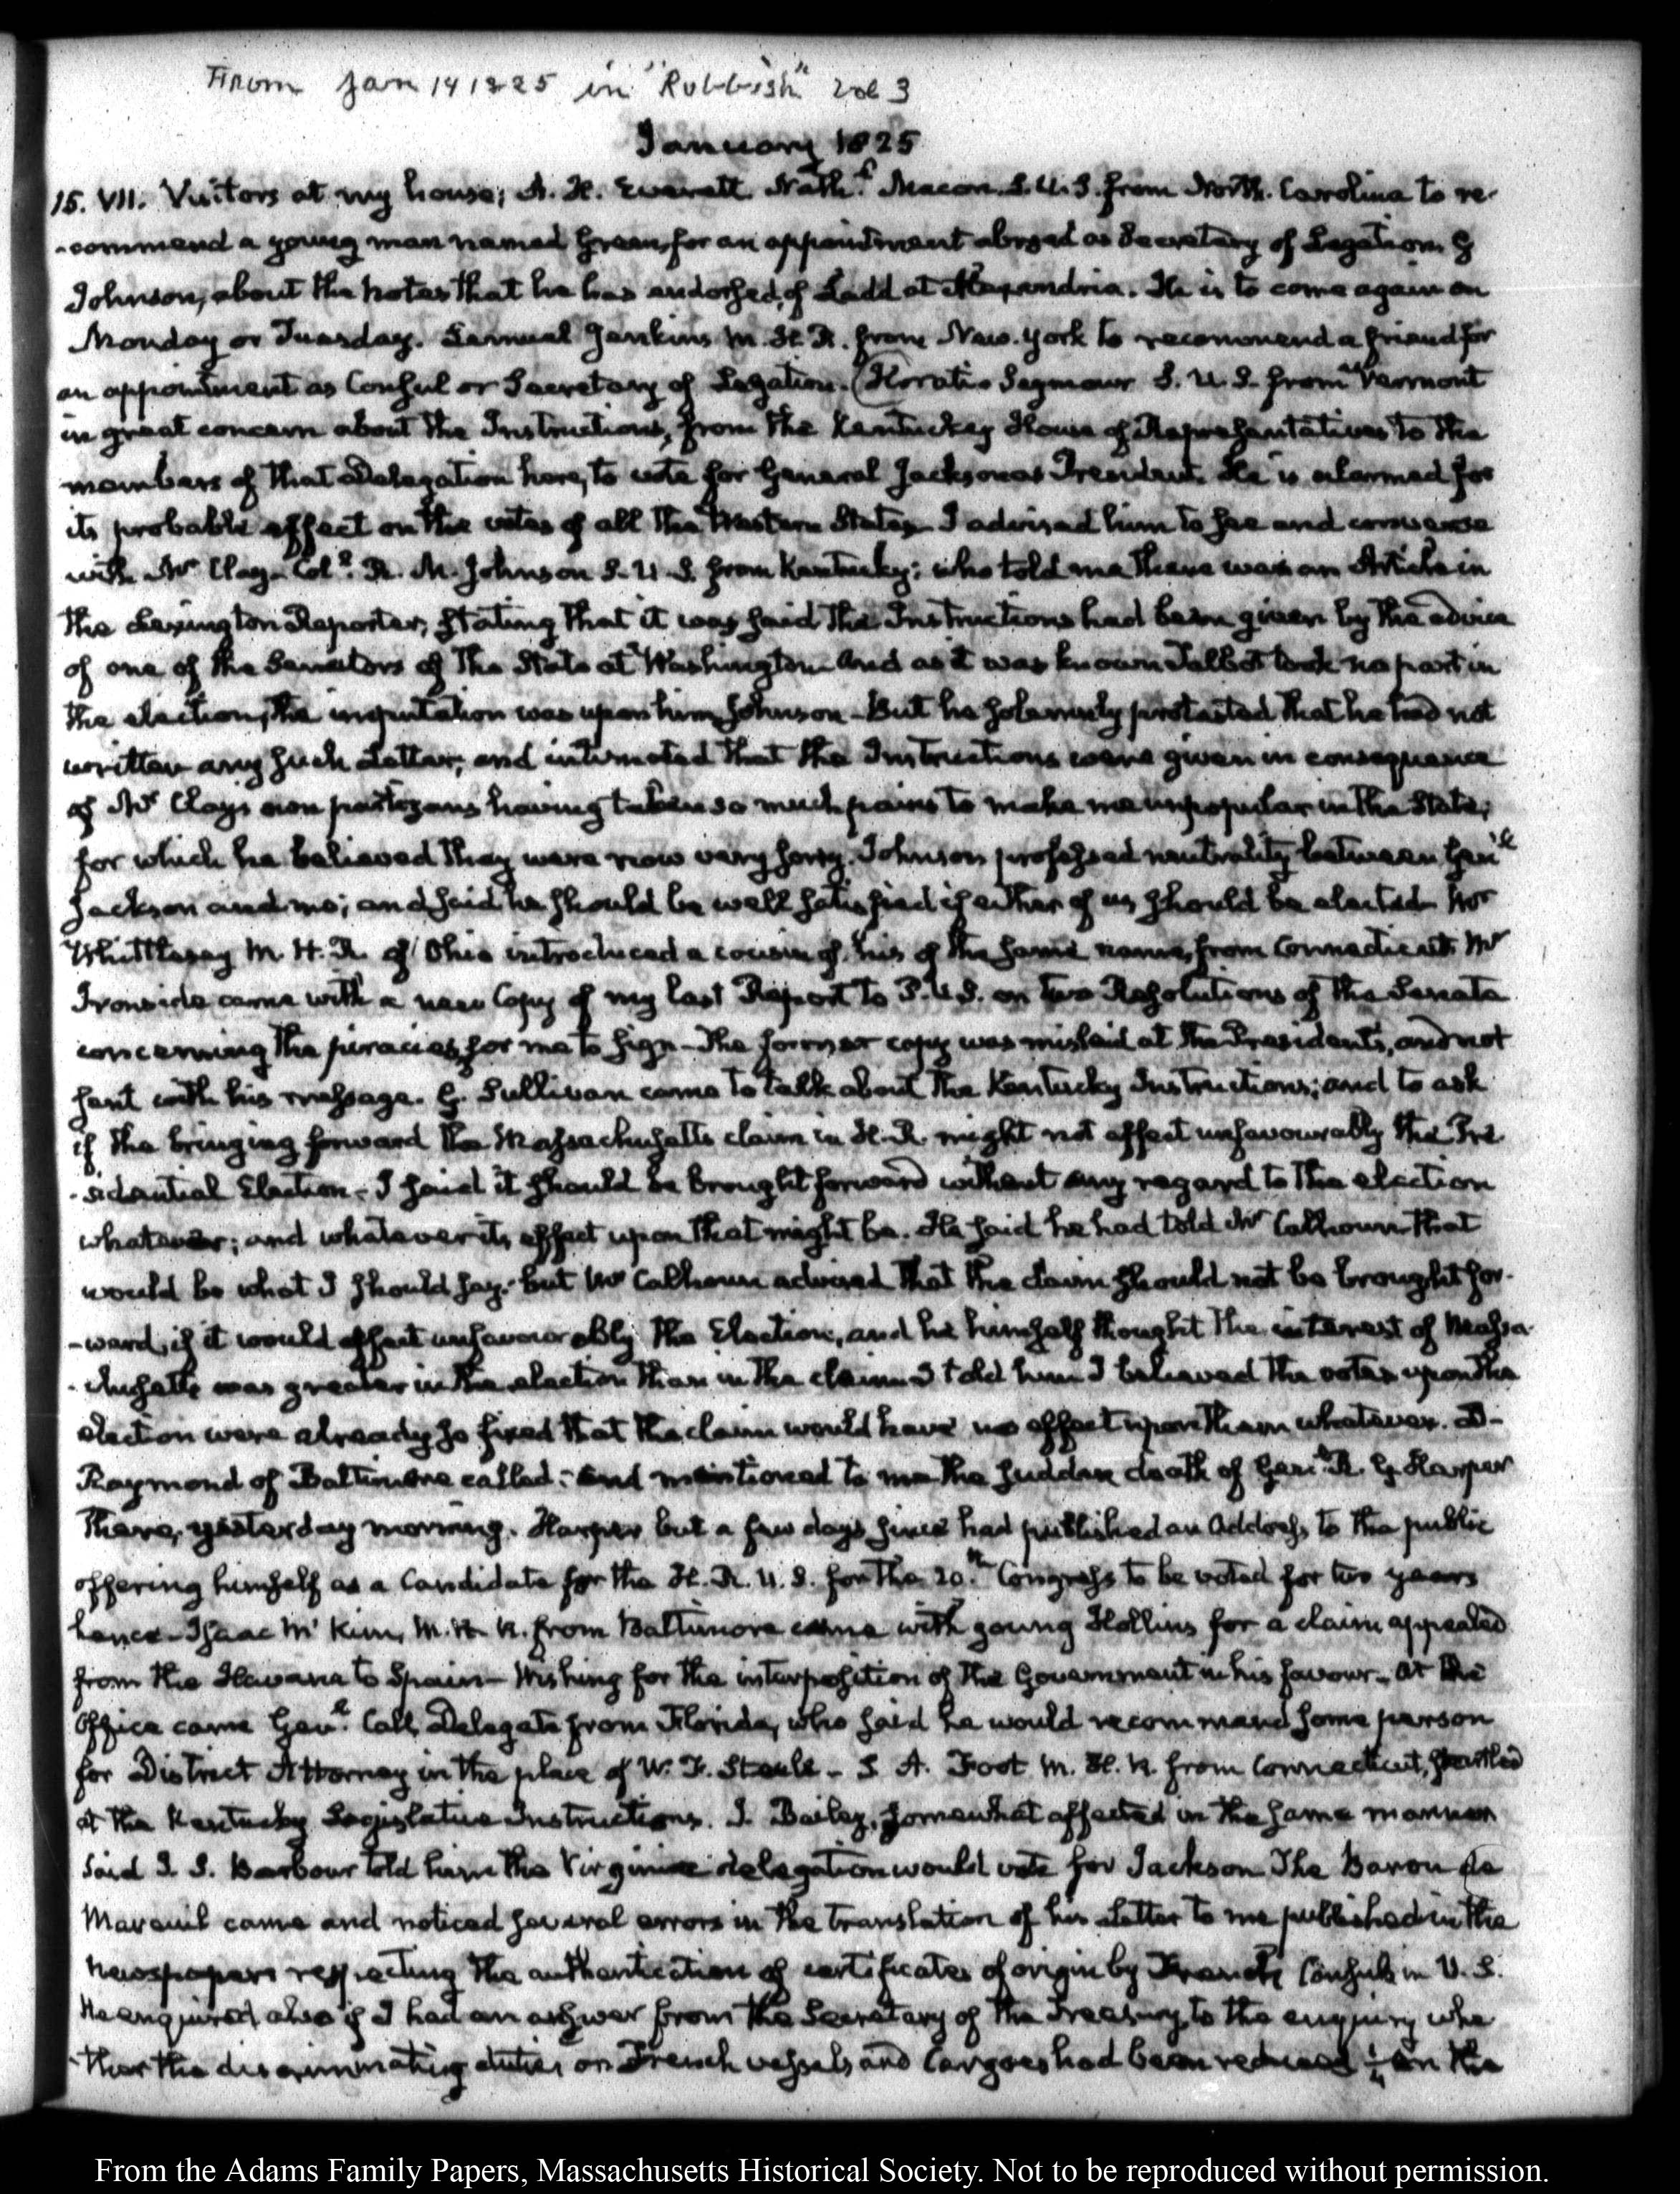 From Jan 14 1825 in "Rubbish" vol 3
January 1825
15. VII. Visitors at my house; A. H. Everett. Nath.l Macon S.U.S. from North-Carolina to re-
-commend a young man named Green, for an appointment abroad as Secretary of Legation. G
Johnson, about the notes that he has endorsed, of Ladd at Alexandria. He is to come again on
Monday or Tuesday. Lemuel Jenkins M. H. R. from New-York to recommend a friend for
an appointment as Consul or Secretary of Legation. (Horatio Seymour S. U. S. from Vermont
in great concern about the Instructions, from the Kentucky House of Representatives to the
members of that Delegation here, to vote for General Jackson as President. He is alarmed for
its probable effect on the votes of all the Western States. I advised him to see and converse
with Mr Clay. Col.l R. M. Johnson S. U. S. from Kentucky; who told me there was an Article in
the Lexington Reporter, stating that it was said the Instructions had been given by the advice
of one of the Senators of the State at Washington. And as it was known Talbot took no part in
the election, the imputation was upon him Johnson. But he solemnly protested that he had not
written any such Letter; and intimated that the Instructions were given in consequence
of Mr Clay's own partizans having taken so much pains to make me unpopular in the State;
for which he believed they were now very sorry. Johnson professed neutrality between Gen'l
Jackson and me; and said he should be well satisfied if either of us should be elected. Mr
Whittlesey M. H. R. of Ohio introduced a cousin of his of the same name, from Connecticut. Mr
Ironside came with a new Copy of my last Report to P.U.S. on two Resolutions of the Senate
concerning the piracies, for me to sign. The former copy was mislaid at the President's, and not
sent with his message. G. Sullivan came to talk about the Kentucky Instructions; and to ask
if the bringing forward the Massachusetts claim in H. R. might not affect unfavourably the Pre-
-sidential Election. I said it should be brought forward without any regard to the election
whatever; and whatever its effect upon that might be. He said he had told Mr Calhoun that
would be what I should say. but Mr Calhoun advised that the claim should not be brought for-
-ward, if it would affect unfavourably the Election, and he himself thought the interest of Massa-
-chusetts was greater in the election than in the claim. I told him I believed the votes upon the
election were already so fixed that the claim would have no effect upon them whatever. D-
Raymond of Baltimore called. and mentioned to me the sudden death of Gen.l R. G. Harper
there, yesterday morning. Harper but a few days since had published an Address to the public
offering himself as a Candidate for the H. R. U. S. for the 20.th Congress to be voted for two years
hence. Isaac McKim, M. H. R. from Baltimore came with young Hollins for a claim appealed
from the Havana to Spain. Wishing for the interposition of the Government in his favour. At the
Office came Gen.l Call, Delegate from Florida, who said he would recommend some person
for District Attorney in the place of W. F. Steele. S. A. Foot M. H. R. from Connecticut, startled
at the Kentucky Legislative Instructions. J. Bailey, somewhat affected in the same manner
said J. S. Barbour told him the Virginia delegation would vote for Jackson. The Baron de
Mareuil came and noticed several errors in the translation of his Letter to me published in the
Newspapers respecting the authentication of certificates of origin by French Consuls in U. S.
He enquired also if I had an answer from the Secretary of the Treasury, to the enquiry whe-
-ther the discriminating duties on French vessels and Cargoes had been reduced 1/4 on the
From the Adams Family Papers, Massachusetts Historical Society. Not to be reproduced without permission.